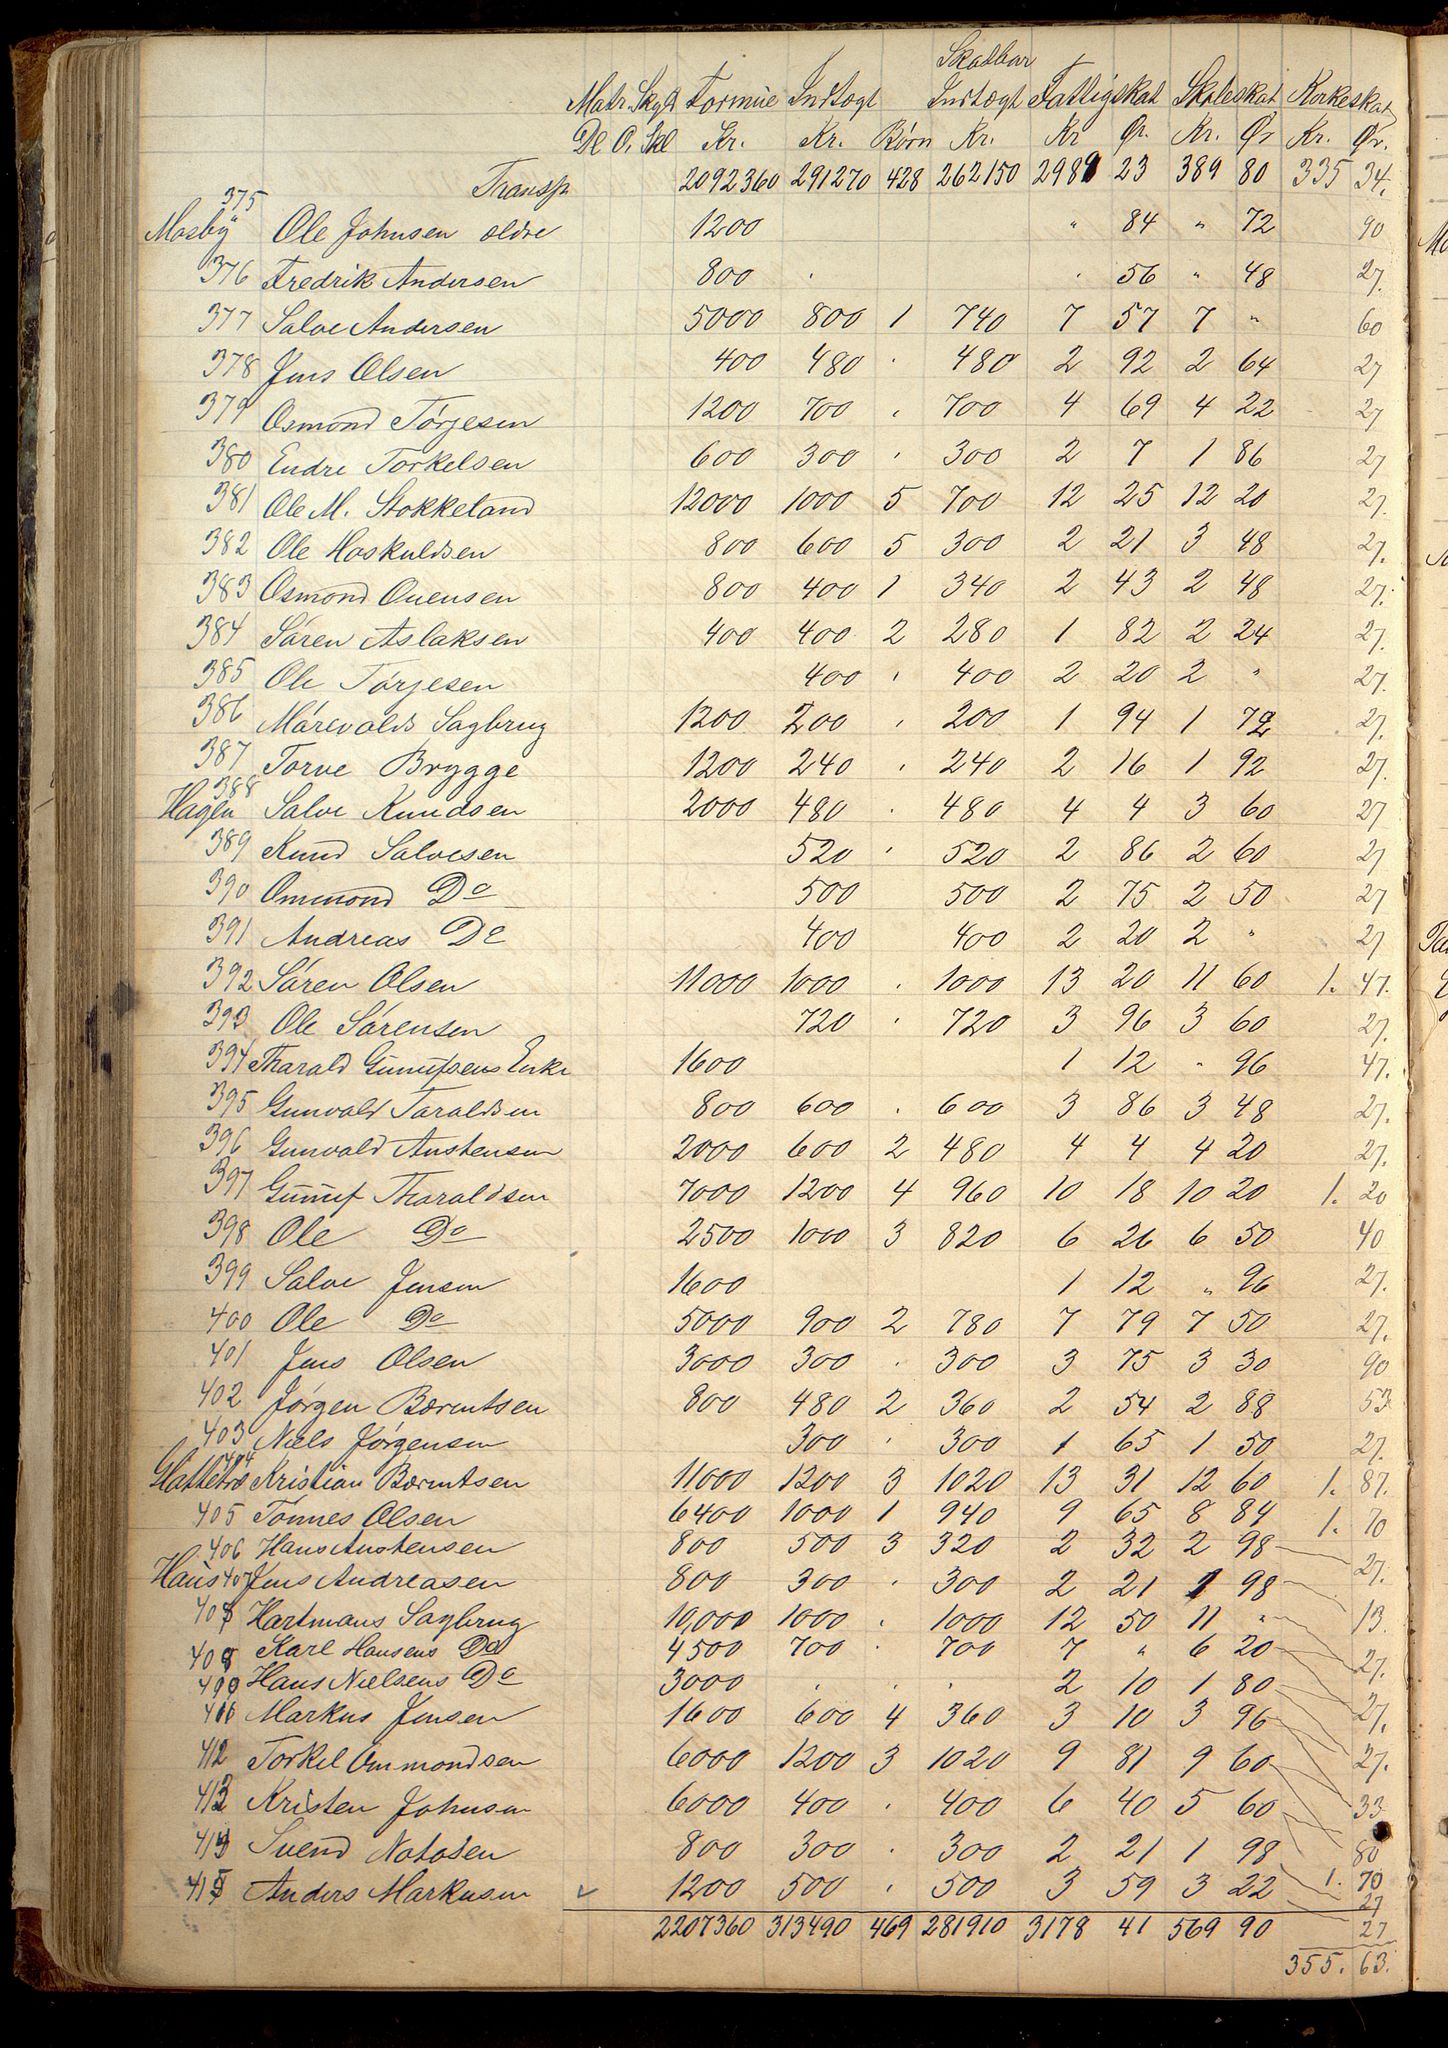 Skatbar
Matr. Skyld Formue Indtægt Indtægt Fattigskat Skoleskat Kirkeskat
Dl O. Sk Kr. Kr. Børn Kr. Kr Ør. Kr. Ør Kr. Ør.
Transp 2092360 291270 428 262150 2989 23 389 80 335 34.
375
Mosby Ole Johnsen ældre 1200 " 84 " 72 90
376 Fredrik Andersen 800 . . 56 " 48 27.
377 Salve Andersen 5000 800 1 740 7 57 7 " 60
378 Jens Olsen 400 480 . 480 2 92 2 64 27
379 Osmond Tørjesen 1200 700 . 700 4 69 4 22 27
380 Endre Torkelsen 600 300 . 300 2 7 1 86 27
381 Ole M. Stokkeland 12000 1000 5 700 12 25 12 20 27.
382 Ole Hoskuldsen 800 600 5 300 2 21 3 48 27.
383 Osmond Ouensen 800 400 1 340 2 43 2 48 27.
384 Søren Aslaksen 400 400 2 280 1 82 2 24 27.
385 Ole Torjesen 400 . 400 2 20 2 " 27.
386 Mårevolds Sagbrug 1200 200 . 200 1 94 1 72 27.
387 Torve Brygge 1200 240 . 240 2 16 1 92 27.
388
Hagen Salve Knudsen 2000 480 . 480 4 4 3 60 27
389 Knud Salvesen 520 . 520 2 86 2 60 27
390 Ommond Do 500 500 2 75 2 50 27
391 Andreas Do 400 400 2 20 2 " 27
392 Søren Olsen 11000 1000 . 1000 13 20 11 60 1. 47.
393 Ole Sørensen 720 . 720 3 96 3 60 27.
394 Tharald Gunufsens Enke 1600 1 12 " 96 47.
395 Gunvald Taraldsen 800 600 . 600 3 86 3 48 27.
396 Gunvald Austensen 2000 600 2 480 4 4 4 20 27.
397 Gunuf Tharaldsen 7000 1200 4 960 10 18 10 20 1. 20
398 Ole Do 2500 1000 3 820 6 26 6 50 40
399 Salve Jensen 1600 1 12 " 96 27.
400 Ole Do 5000 900 2 780 7 79 7 50 27.
401 Jens Olsen 3000 300 . 300 3 75 3 30 90
402 Jørgen Bærentsen 800 480 2 360 2 54 2 88 53
403 Niels Jørgensen 300 . 300 1 65 1 50 27.
404
Kristian Bærentsen 11000 1200 3 1020 13 31 12 60 1. 87.
405 Tønnes Olsen 6400 1000 1 940 9 65 8 84 1. 70
406 Hans Austensen 800 500 3 320 2 32 2 98 27.
Haus 407 Jens Andreasen 800 300 . 300 2 21 1 98 13.
Hartmans Sagbrug 10,000 1000 . 1000 12 50 11 " 27.
Karl Hansens Do 4500 700 . 700 7 " 6 20 27.
Hans Nielsens Do 3000 . . . 2 10 1 80 27.
Markus Jensen 1600 600 4 360 3 10 3 96 33
412 Torkel Ommondsen 6000 1200 3 1020 9 81 9 60 80
413 Kristen Johnsen 6000 400 . 400 6 40 5 60 1. 70
414 Svend Notosen 800 300 . 300 2 21 1 98 27
415 Anders Markusen 1200 500 . 500 3 59 3 22 27
2207360 313490 469 281910 3178 41 569 90
355. 63.